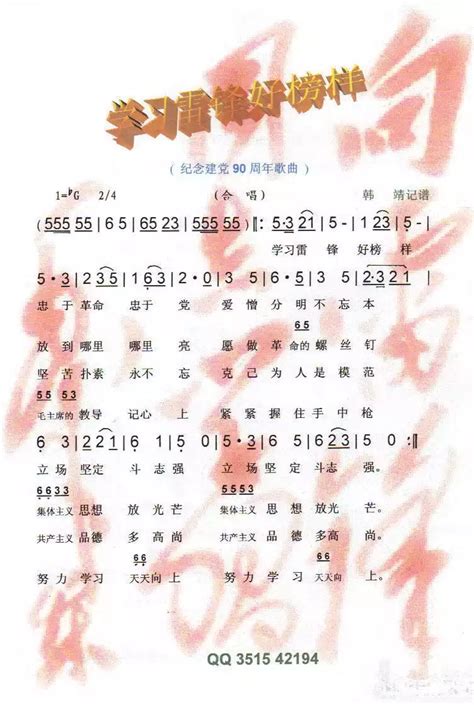 学习雷锋好榜样
（ 纪念建党 90 周年歌曲 ）
1=♭G 2/4 （合 唱） 韩 靖记谱
(555 55 | 6 5 | 65 23 | 555 55 ) ‖: 5·3 21 | 5 - | 1·2 23 | 5 - |
学习雷 锋 好榜 样
5 · 3 | 2 235 | 1 663 | 2 - | 1 6 · | 5 · 3 | 5 2 | 2·3 2 1 |
忠 于 革命 忠于 党 爱 憎 分 明 不 忘 本
6 5
放 到 哪里 哪里 亮 愿 做 革 命 的 螺 丝 钉
坚 苦 扑素 永不 忘 克 己 为 人 是 模 范
毛主席的 教导 记心 上 紧 紧 握 住 手 中 枪
6 3 | 2 2 1 | 6 1 6 | 5 0 | 5 3 | 5 0 | 6 2 3 | 5 0 :‖
立 场 坚定 斗志 强 立 场 坚 定 斗志 强。
6 6 3 3 5 5 5 3
集体主义 思想 放光 芒 集体主义 思 想 放光 芒。
共产主义 品德 多高 尚 共产主义 品 德 多高 尚。
6 6 6 6
努 力 学习 天天向 上 努 力 学 习 天天向 上。
QQ 3515 42194